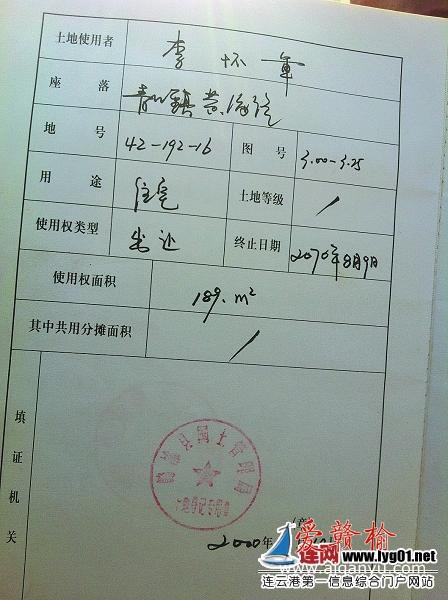 土地使用者 李怀军
座落 青口镇黄海路
地号 42-192-16 图号 5.00-5.25
用途 住宅 土地等级 /
使用权类型 出让 终止日期 2070年8月9日
使用权面积 189.m²
其中共用分摊面积 /
填证机关
赣榆县国土管理局
土地登记专用章
2000年
爱赣榆
连网 www.lyg01.net
www.aiganyu.com
连云港第一信息综合门户网站